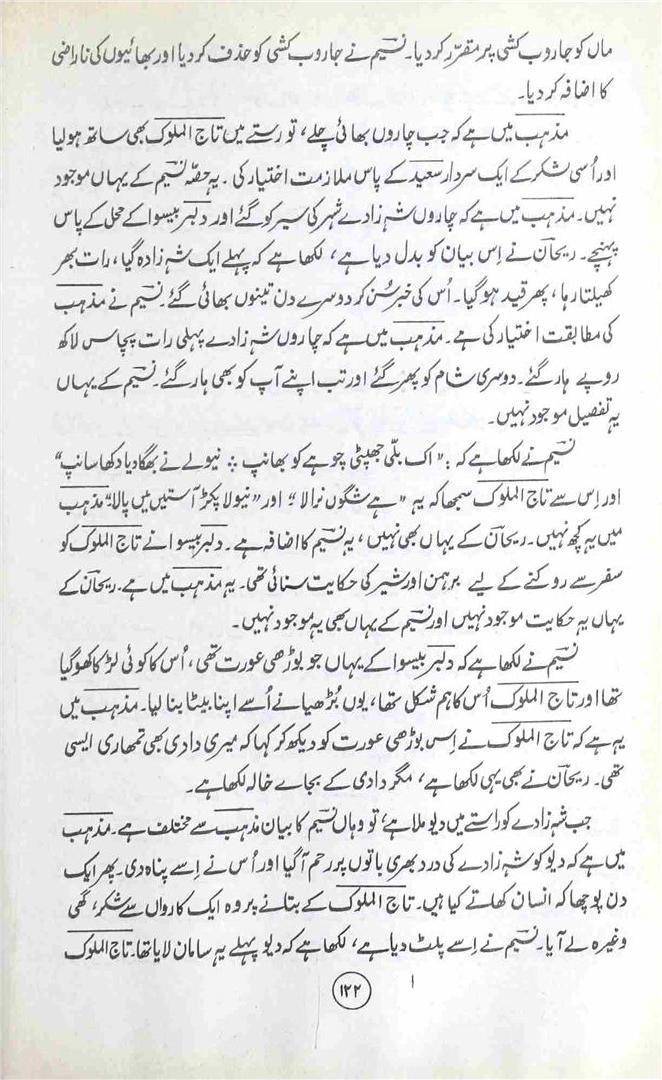 ماں کو جاروب کشی پر مقرّر کر دیا۔ نسیم نے جاروب کشی کو حذف کر دیا اور بھائیوں کی ناراضی
کا اضافہ کر دیا۔
مذہب میں ہے کہ جب چاروں بھائی چلے، تو رستے میں تاج الملوک بھی ساتھ ہو لیا
اور اُسی لشکر کے ایک سردار سعید کے پاس ملازمت اختیار کی۔ یہ حصّہ نسیم کے یہاں موجود
نہیں۔ مذہب میں ہے کہ چاروں شہ زادے شہر کی سیر کو گئے اور دلبر بیسوا کے محل کے پاس
پہنچے۔ ریحان نے اِس بیان کو بدل دیا ہے، لکھا ہے کہ پہلے ایک شہ زادہ گیا، رات بھر
کھیلتا رہا، پھر قید ہو گیا۔ اُس کی خبر سُن کر دوسرے دن تینوں بھائی گئے۔ نسیم نے مذہب
کی مطابقت اختیار کی ہے۔ مذہب میں ہے کہ چاروں شہ زادے پہلی رات پچاس لاکھ
روپے ہار گئے۔ دوسری شام کو پھر گئے اور تب اپنے آپ کو بھی ہار گئے۔ نسیم کے یہاں
یہ تفصیل موجود نہیں۔
نسیم نے لکھا ہے کہ: "اک بلّی جھپٹی چوہے کو بھانپ ؞ نیولے نے بھگا دیا دکھا سانپ"
اور اِس سے تاج الملوک سمجھا کہ یہ "ہے شگون نرالا" اور "نیولا پکڑ آستیں میں پالا"۔ مذہب
میں یہ کچھ نہیں۔ ریحان کے یہاں بھی نہیں، یہ نسیم کا اضافہ ہے۔ دلبر بیسوا نے تاج الملوک کو
سفر سے روکنے کے لیے برہمن اور شیر کی حکایت سنائی تھی۔ یہ مذہب میں ہے۔ ریحان کے
یہاں یہ حکایت موجود نہیں اور نسیم کے یہاں بھی یہ موجود نہیں۔
نسیم نے لکھا ہے کہ دلبر بیسوا کے یہاں جو بوڑھی عورت تھی، اُس کا کوئی لڑکا کھو گیا
تھا اور تاج الملوک اُس کا ہم شکل تھا، یوں بُڑھیا نے اُسے اپنا بیٹا بنا لیا۔ مذہب میں
یہ ہے کہ تاج الملوک نے اِس بوڑھی عورت کو دیکھ کر کہا کہ میری دادی بھی تمھاری ایسی
تھی۔ ریحان نے بھی یہی لکھا ہے، مگر دادی کے بجاے خالہ لکھا ہے۔
جب شہ زادے کو راستے میں دیو ملا ہے، تو وہاں نسیم کا بیان مذہب سے مختلف ہے۔ مذہب
میں ہے کہ دیو کو شہ زادے کی درد بھری باتوں پر رحم آ گیا اور اُس نے اِسے پناہ دی۔ پھر ایک
دن پوچھا کہ انسان کھاتے کیا ہیں۔ تاج الملوک کے بتانے پر وہ ایک کارواں سے شکر، گھی
وغیرہ لے آیا۔ نسیم نے اِسے پلٹ دیا ہے، لکھا ہے کہ دیو پہلے یہ سامان لایا تھا۔ تاج الملوک
۱۲۲